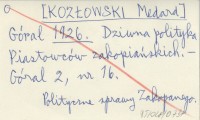 [KOZŁOWSKI Medard]
Góral 1926. Dziwna polityka
Piastowców zakopiańskich. –
Góral 2, nr 16.
Polityczne sprawy Zakopanego.